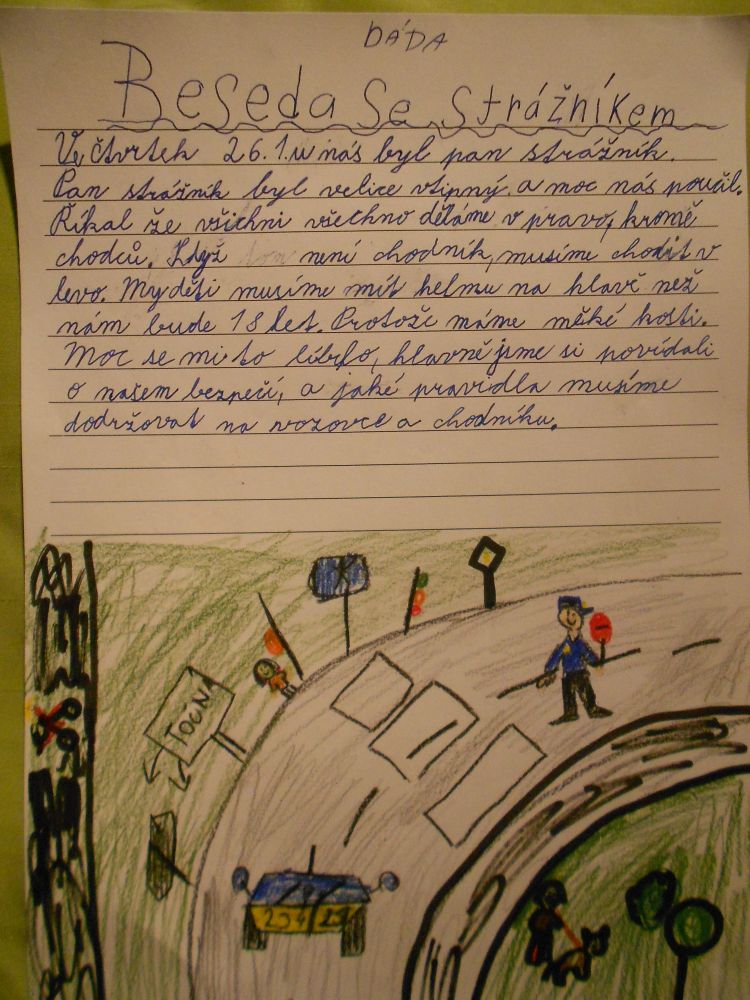 DÁDA
Beseda se strážníkem
Ve čtvrtek 26.1. u nás byl pan strážník.
Pan strážník byl velice vtipný a moc nás poučil.
Říkal že všichni všechno děláme v pravo, kromě
chodců. Když není chodník, musíme chodit v
levo. My děti musíme mít helmu na hlavě než
nám bude 18 let. Protože máme měké kosti.
Moc se mi to líbylo, hlavně jsme si povídali
o našem bezpečí, a jaké pravidla musíme
dodržovat na vozovce a chodníku.
TOČNÁ